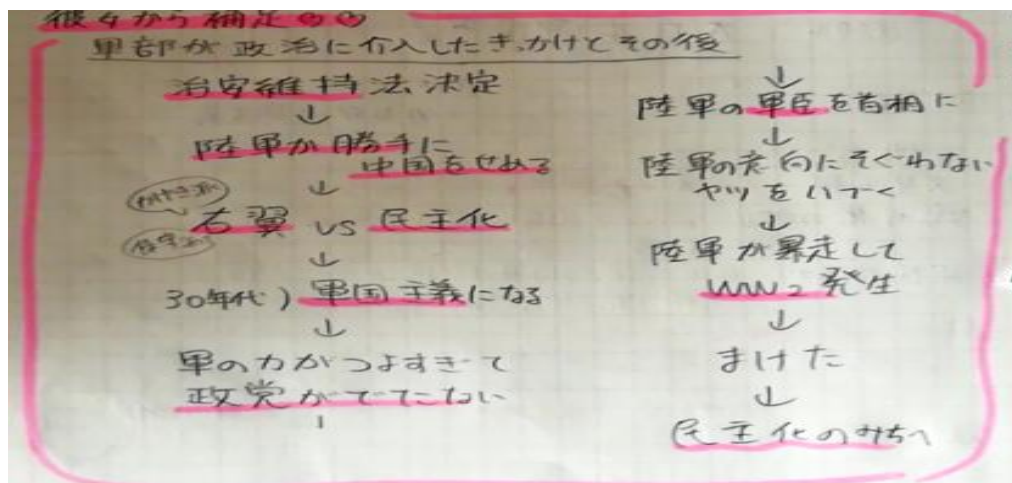 彼々から補足
軍部が政治に介入したきっかけとその後
治安維持法決定
↓
陸軍が勝手に
中国をせめる
↓
右翼 vs 民主化
↓
30年代) 軍国主義になる
↓
軍の力がつよすぎて
政党がでてこない
↓
陸軍の軍臣を首相に
↓
陸軍の意向にそぐわない
ヤツをいブく
↓
陸軍が暴走して
WW2発生
↓
まけた
↓
民主化のみちへ